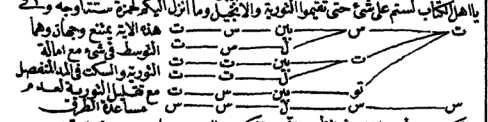 يا اهل الكتاب لستم على شئ حتى تقيموا التورية والانجيل وما انزل اليكم لحمزة ستة اوجه
هذه الآية يمتنع وجهان وهما
ت س بين س ت ت
التوسط فى شئ مع امالة
ل س ت
التورية والسكت فى المد المنفصل
ت بين ت ت ت
ل ت ت
مع تقليل التورية لعدم
تو بين س س س
مساعدة الطرق
س س ل س س س